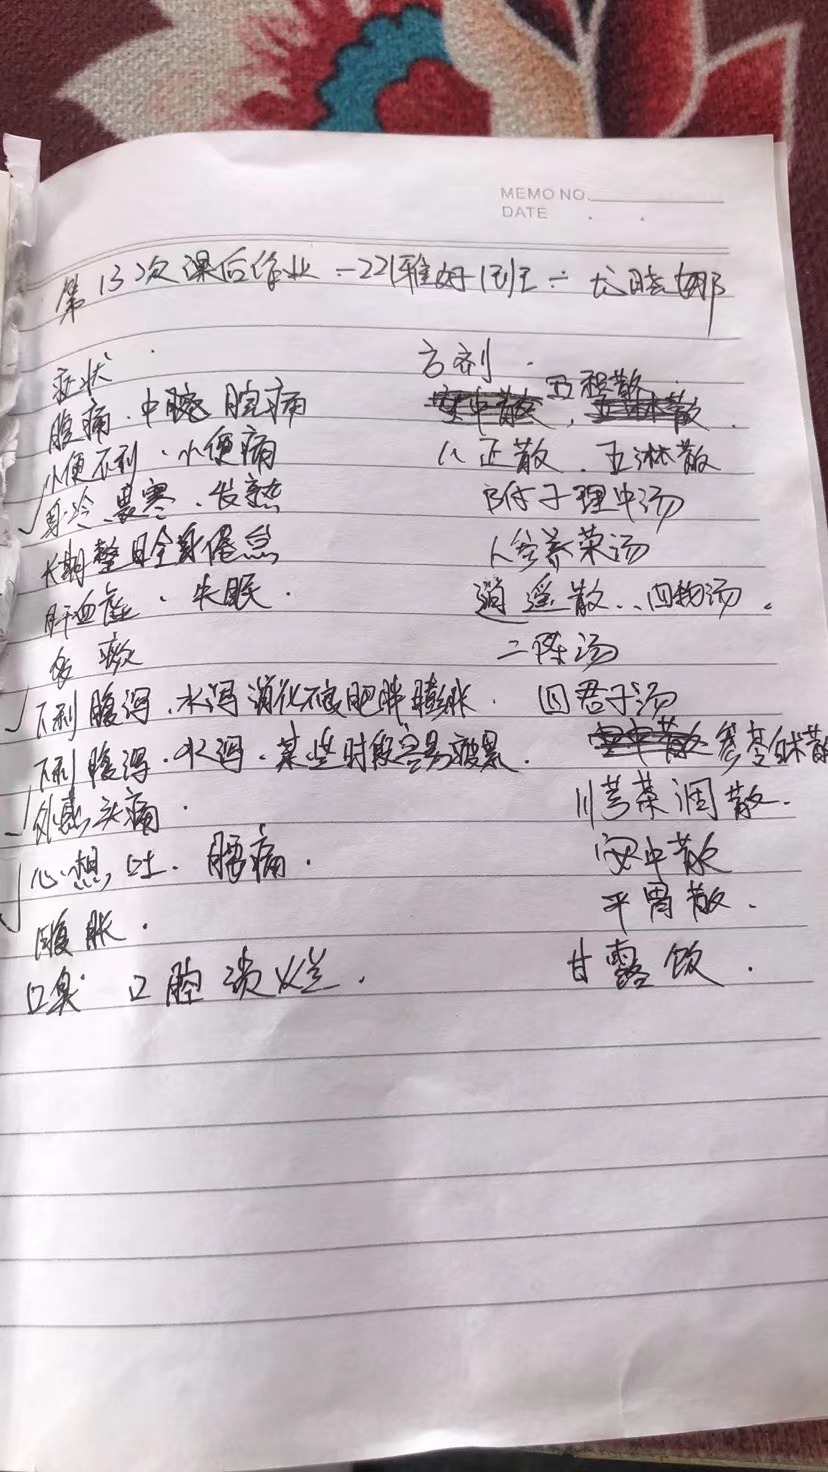 MEMO NO.
DATE . .
第13次课后作业 - 221雅好1班 - 尤晓娜
症状. 方剂.
腹痛. 中脘 腔痛 五积散.
小便不利. 小便痛 八正散. 五淋散
身冷 畏寒. 发热 附子理中汤
长期整日全身倦怠 人参养荣汤
肝血虚. 失眠. 逍遥散.. 四物汤.
咳嗽 二陈汤
下利腹泻. 水泻 消化不良肥胖膨胀. 四君子汤
下利腹泻. 水泻. 某些时段容易疲累. 参苓白术散
外感头痛. 川芎茶调散.
心想, 吐. 腰痛. 安中散
腹胀. 平胃散.
口臭 口腔溃烂. 甘露饮.